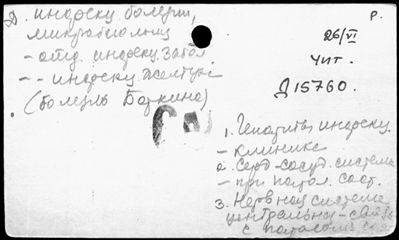 Д. инфекц. болезни,
микробиолог.
- отд. инфекц. забол.
- - инфекц. желтуха
(болезнь Боткина)
Р.
26/VI
Чит.
Д15760.
1. Гепатит инфекц.
- клиника
2. Серд-сосуд. система
- при патол. сост.
3. Нервная система
центральная -
с патологи